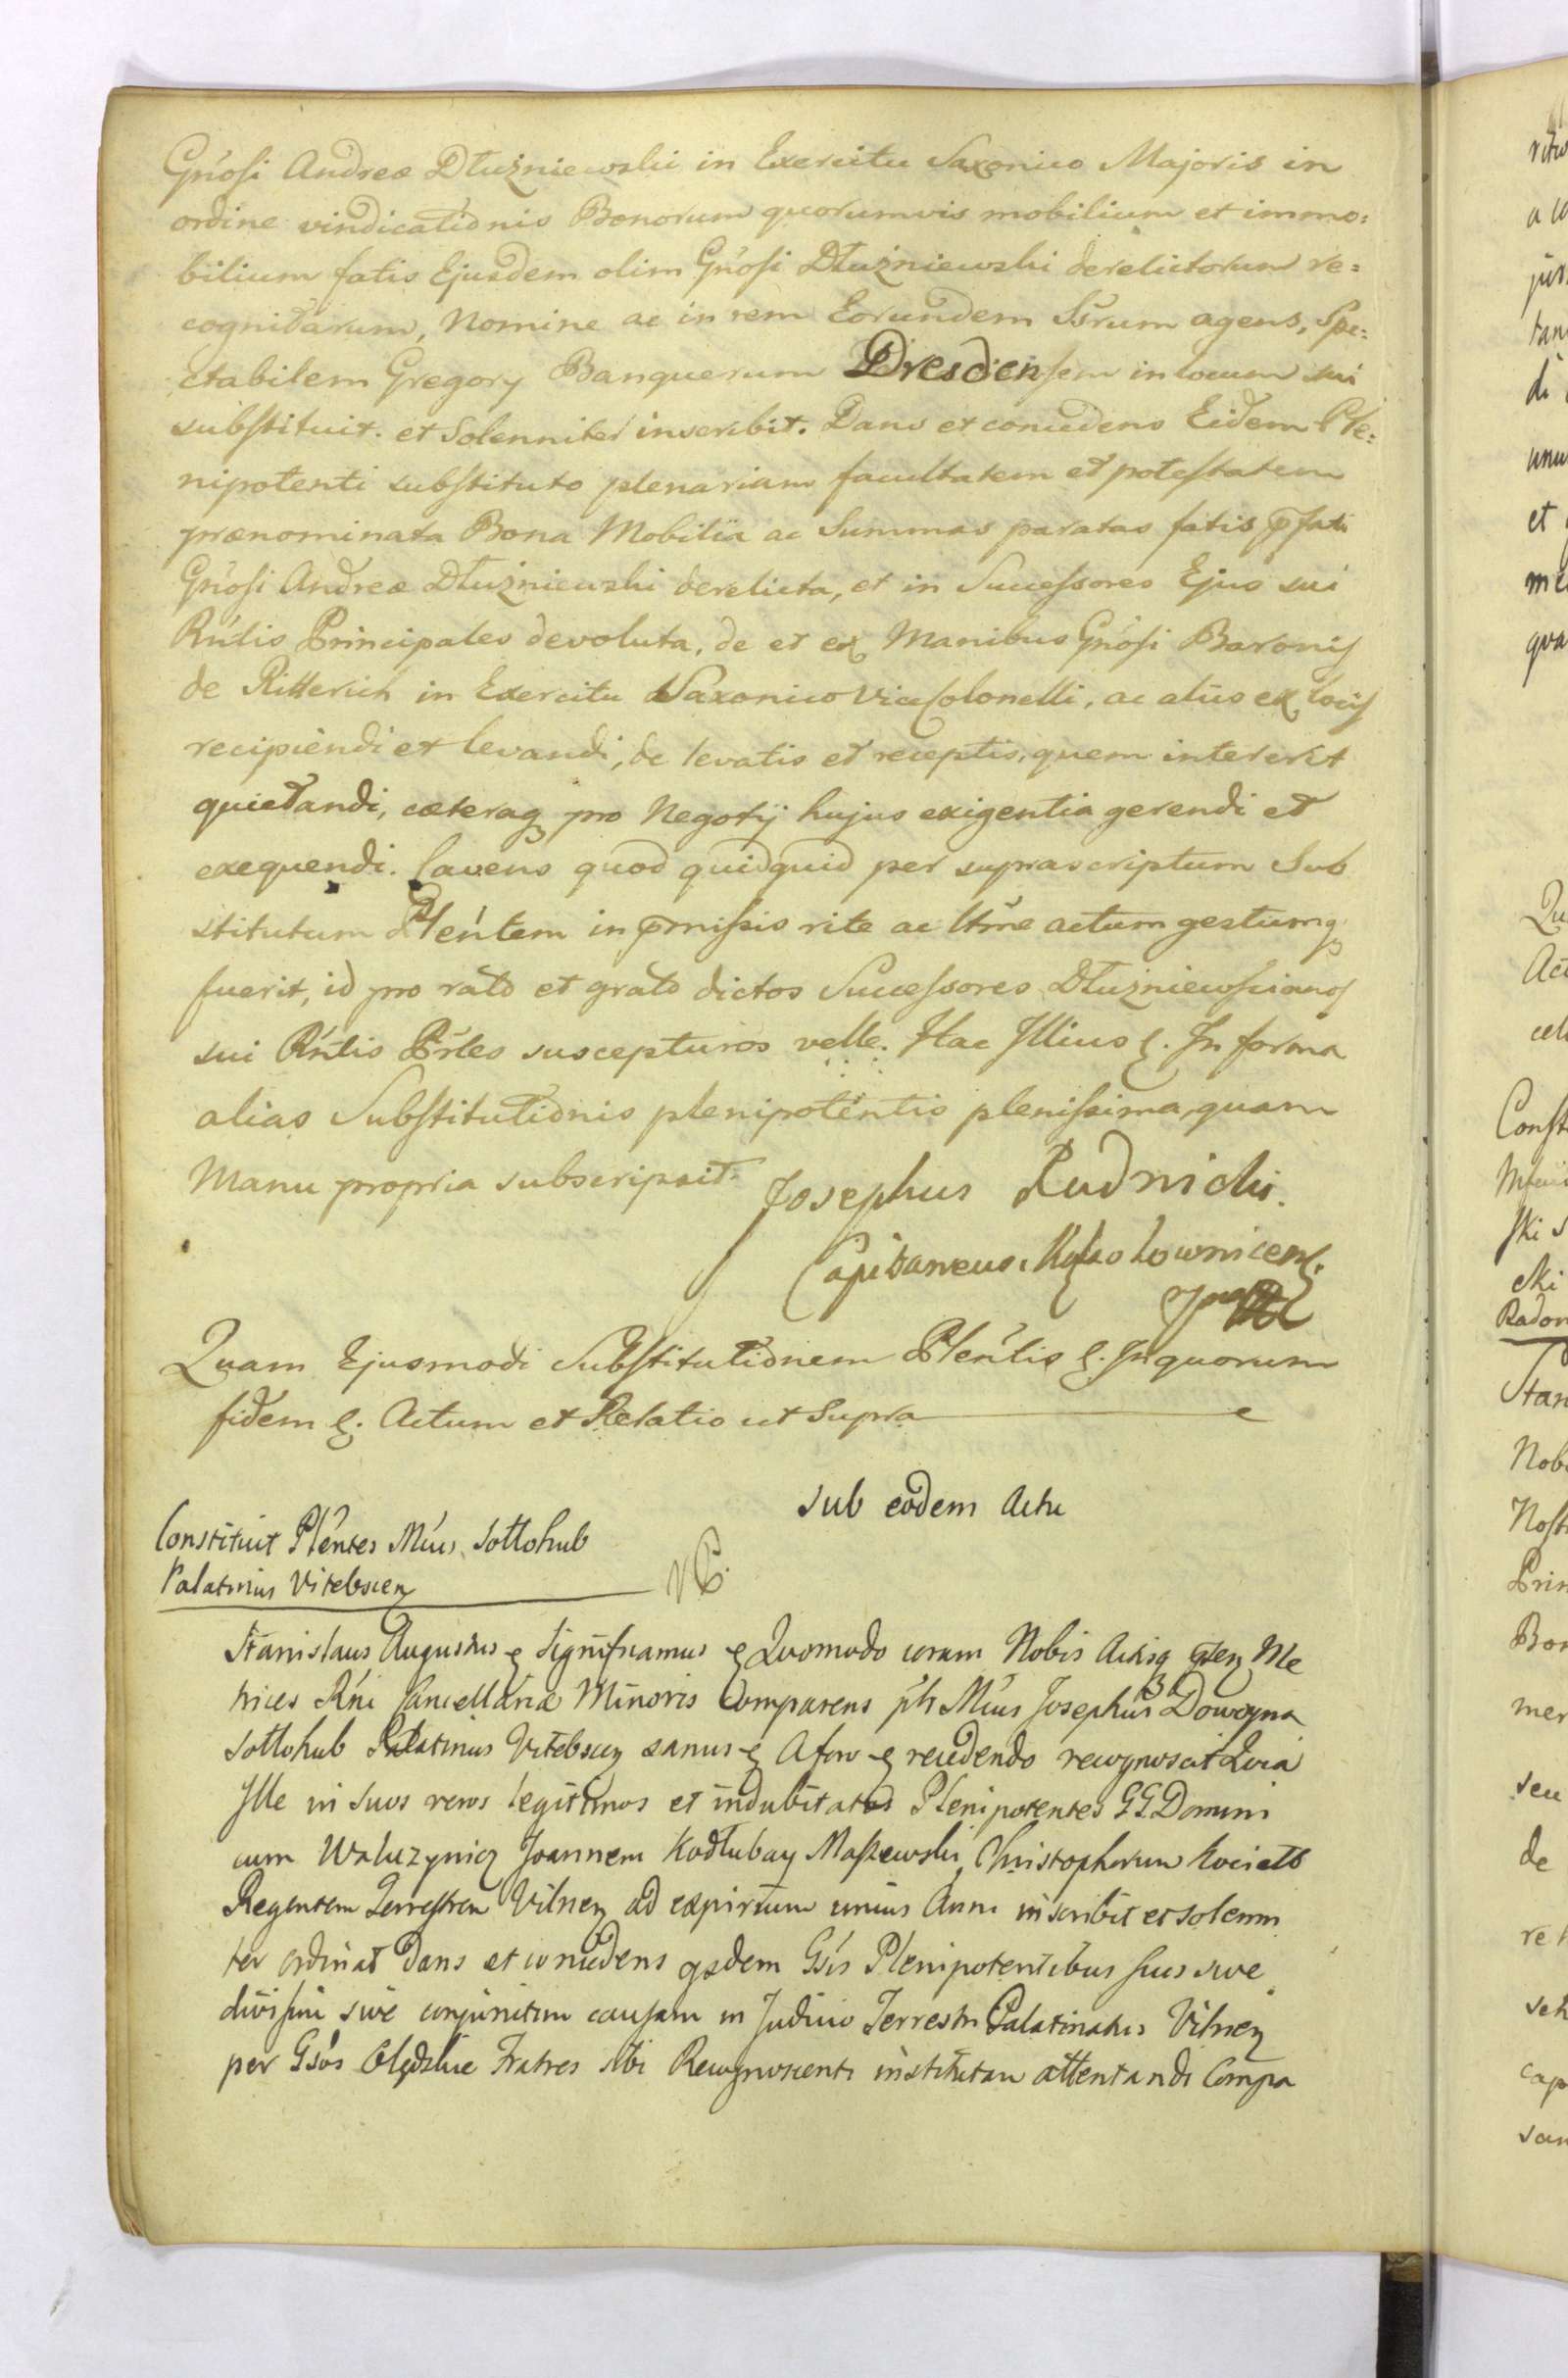 Gńosi Andreæ Dłużniewski in Exercitu Saxonico Majoris in
ordine vindicationis Bonorum quorumvis mobilium et immo:
bilium fatis Ejusdem olim Gńosi Dłużniewski derelictorum re:
cognitarum, Nomine ac in rem Eorundem Ssrum agens, Spe:
ctabilem Gregory Banquerum Dresdensem in locum sui
substituit. et Solenniter inscribit. Dans et concedens Eidem Ple:
nipotenti substituto plenariam facultatem et potestatem
prænominata Bona Mobilia ac Summas paratas fatis p̄fati
Gńosi Andreæ Dłużniewski derelicta, et in Successores Ejus sui
Rńtis Principales devoluta, de et ex Manibus Gńosi Baronis
de Ritterich in Exercitu Saxonico ViceColonelli, ac aliis ex locis
recipiendi et levandi, de levatis et receptis, quem intererit
quietandi, cæteraq pro Negotij hujus exigentia gerendi et
exequendi. Cavens quod quidquid per suprascriptum Sub
stitutum Pleńtem in p̄missis rite ac ltme actum gestumq
fuerit, id pro rato et grato dictos Successores Dłużniewscianos
sui Rńtis Prles suscepturos velle. Hac Illius &. In forma
alias Substitutionis plenipotentis plenissima, quam
Manu propria subscripsit.
Josephus Rudnicki.
Capitaneus
Quam Ejusmodi Substitutionem Pleńtis &. In quorum
fidem &. Actum et Relatio ut Supra
sub eodem Actu
Constituit Plentes Mńus Sołłohub
Palatinus Vitebscen
Stanislaus Augustus & Significamus & Quomodo coram Nobis Actisq pten Me
trices Rńi Cancellariæ Minoris Comparens pńs Mńus Josephus Dowoyna
Sołłohub Palatinus Vitebscen sanus & A foro & recedendo recognoscit Quia
Ille in suos veros legitimos et indubitatos Plenipotentes GG. Domini
cum Joannem Kodłubay Maszewski, Christophorum Kociełł
Regentem Terrestrem Vilnen ad expirium unius Anni inscribit et solenni
ter ordinat Dans et concedens Plenipotentibus suis sive
divisim sive conjunctim causam in Judicio Terrestri Palatinatus Vilnen
per Gsós Olędzkie Fratres sibi Recognoscenti institutam attentandi Compa